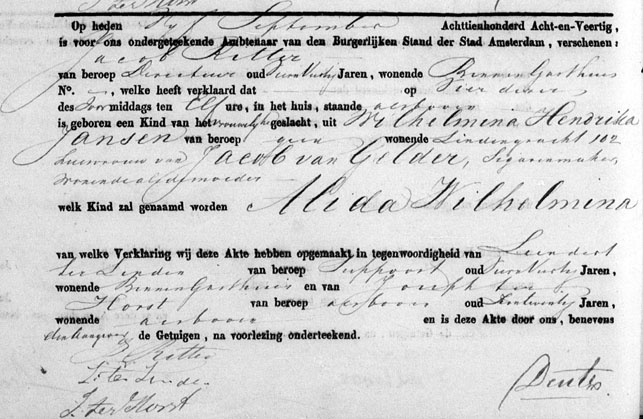 Op heden Vyf September Achttienhonderd Acht-en-Veertig,
is voor ons ondergeteekende Ambtenaar van den Burgerlijken Stand der Stad Amsterdam, verschenen:
Jacob Ritter
van beroep Directeur oud Jaren, wonende Binnen Gasthuis
No. , welke heeft verklaard dat op Vier dezer
des Voormiddags ten Elf ure, in het huis, staande
is geboren een Kind van het geslacht, uit Wilhelmina Hendrika
Jansen van beroep geen wonende Lindengracht 102
Huisvrouw van Jacob van Gelder, Sigarenmaker,
wonende als de moeder
welk Kind zal genaamd worden Alida Wilhelmina
van welke Verklaring wij deze Akte hebben opgemaakt in tegenwoordigheid van Leendert
ter Linden van beroep Suppoost oud Jaren,
wonende Binnen Gasthuis en van Joseph ter
Horst van beroep als boven oud Jaren,
wonende als boven en is deze Akte door ons, benevens
de Getuigen, na voorlezing onderteekend.
Ritter
J. ter Horst